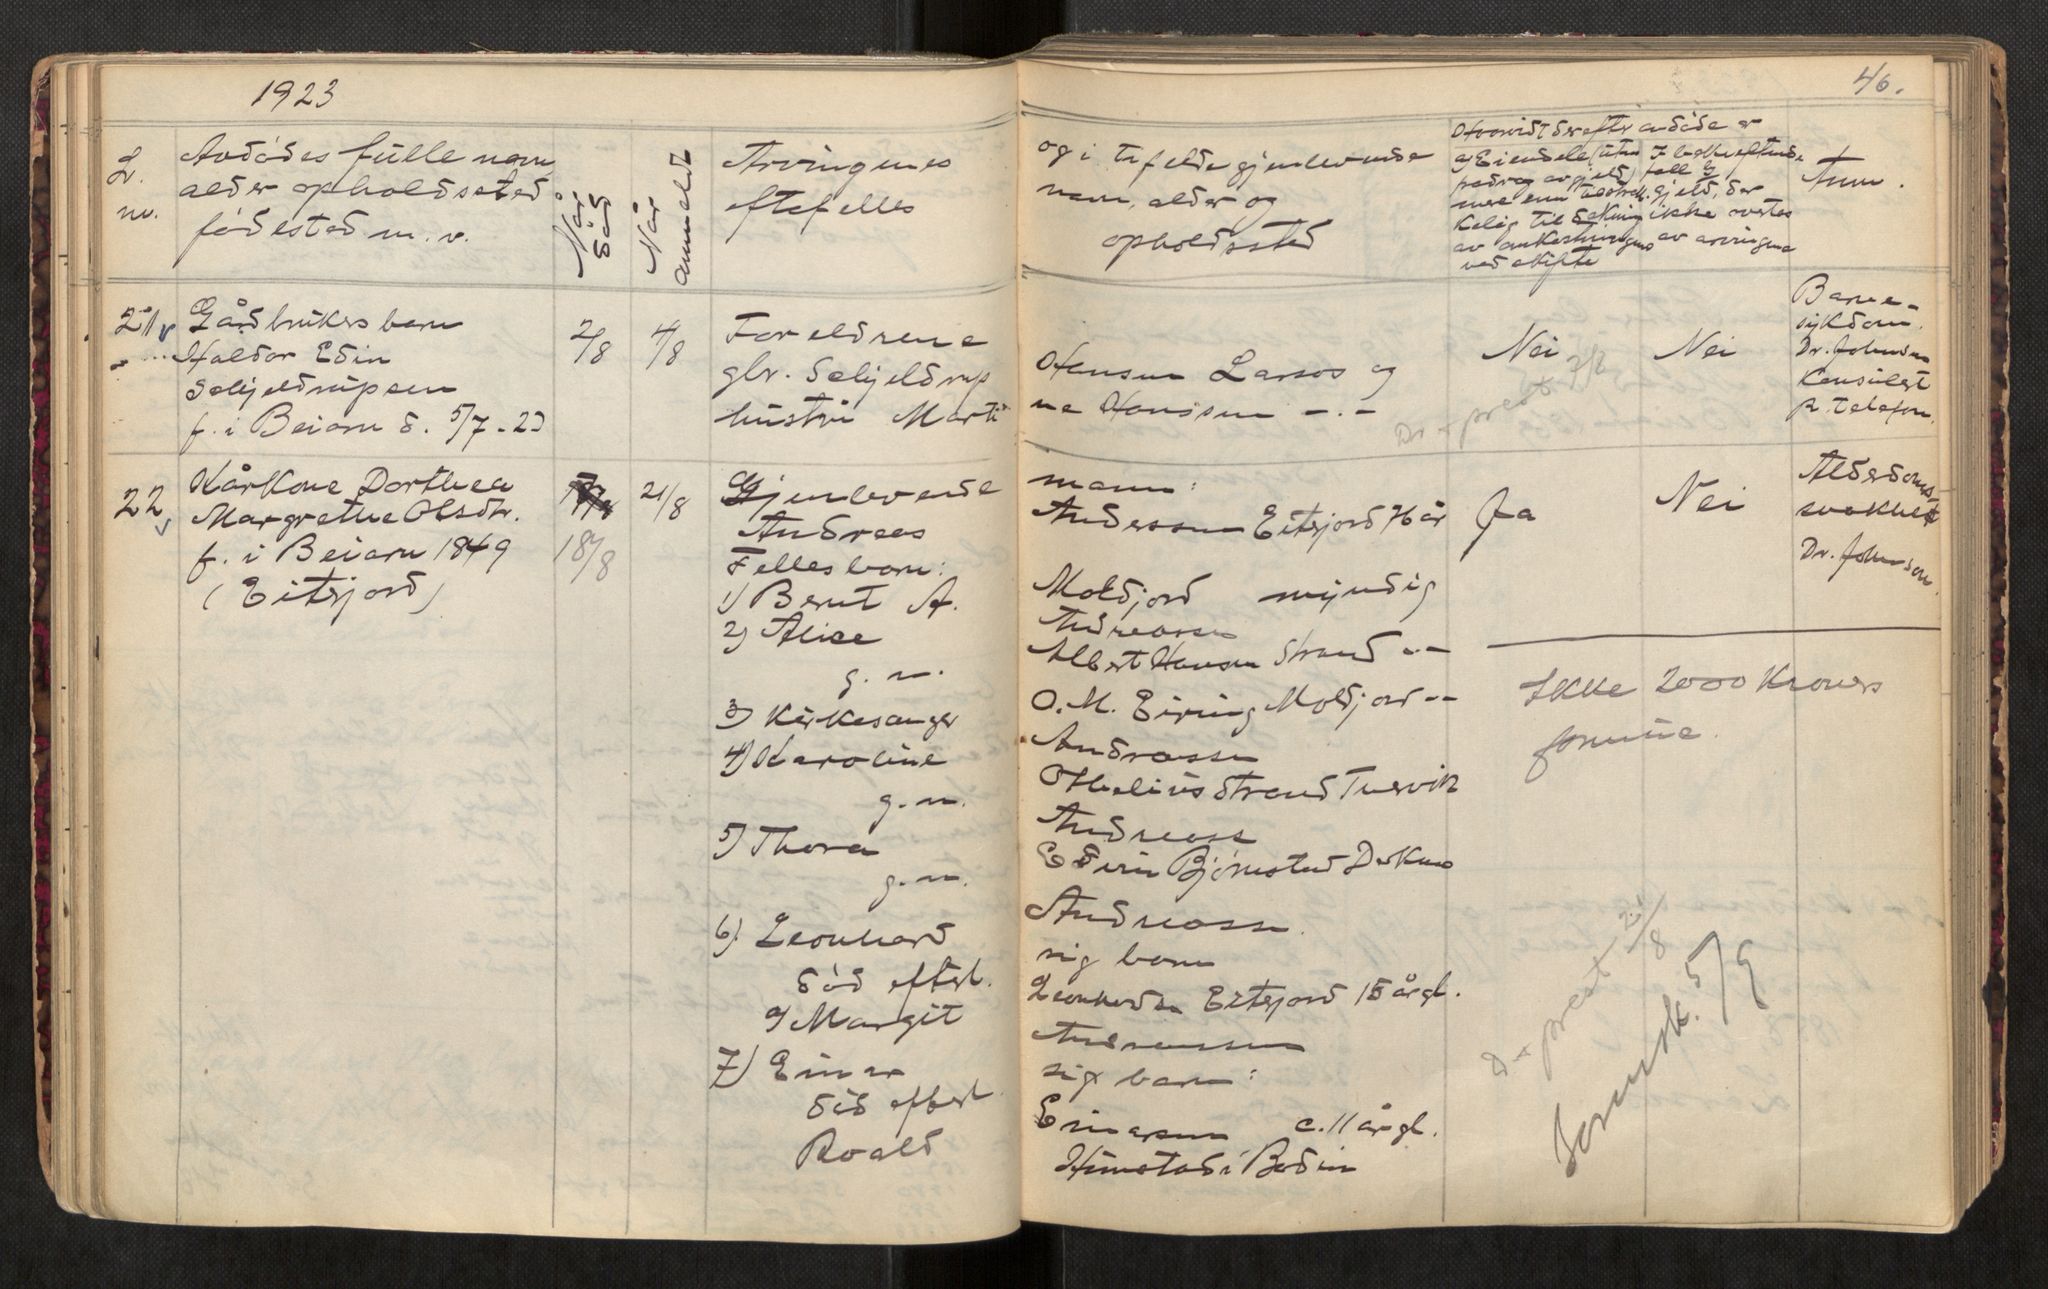 1923
46.
L.
nr.
Avdødes fulle navn,
alder opholdssted
fødested m. v.
Når
død
Når
anmeldt
Arvingenes
og i tilfelde gjenlevende
navn, alder og
opholdssted
Hvorvidt der efter avdøde er
ved skifte
Anm.
21
Gårdbrukers barn
Haldor Edin
Schjeldrupsen
f. i Beiarn d. 5/7-23
2/8
4/8
Foreldrene
gbr. Schjeldrup
hustru Marti
Hansen Larsos og
ne Hanssen -.-
Nei
Nei
Dr + prest 7/8
Barne-
sykdom.
Dr. Johnsen
Konsulert
p. telefon.
22
Kårkone Dorthea
Margrethe Olsdtr.
f. i Beiarn 1849
(Eiterjord)
18/8
21/8
Gjenlevende
Andreas
Felles barn:
1) Bernt A.
2) Alice
g. m.
3) Kirkesanger
4) Karoline
g. m.
5) Thora
g. m.
6) Leonhard
død efterl.
a) Margit
7) Einar
død efterl.
Roald
mann:
Anderssen Eiterjord 76 år
Moldjord myndig
Andreassen
Albert Hansen Strand -.-
O. M. Eiring Moldjord -.-
Andreassen
Othelius Strand Tuervik
Andreass
Edvin Bjørnstad
Andreassen
sig barn
Leonhardsen Eiterjord 15 årgl.
Andreassen
sig barn:
Einarsen c. 11 årgl.
Himstad i Bodin
Ja
Nei
Alderdoms-
svakhet
Dr. Johnson.
Ikke 2000 Kroners
formue.
D + prest 21/8
5/9